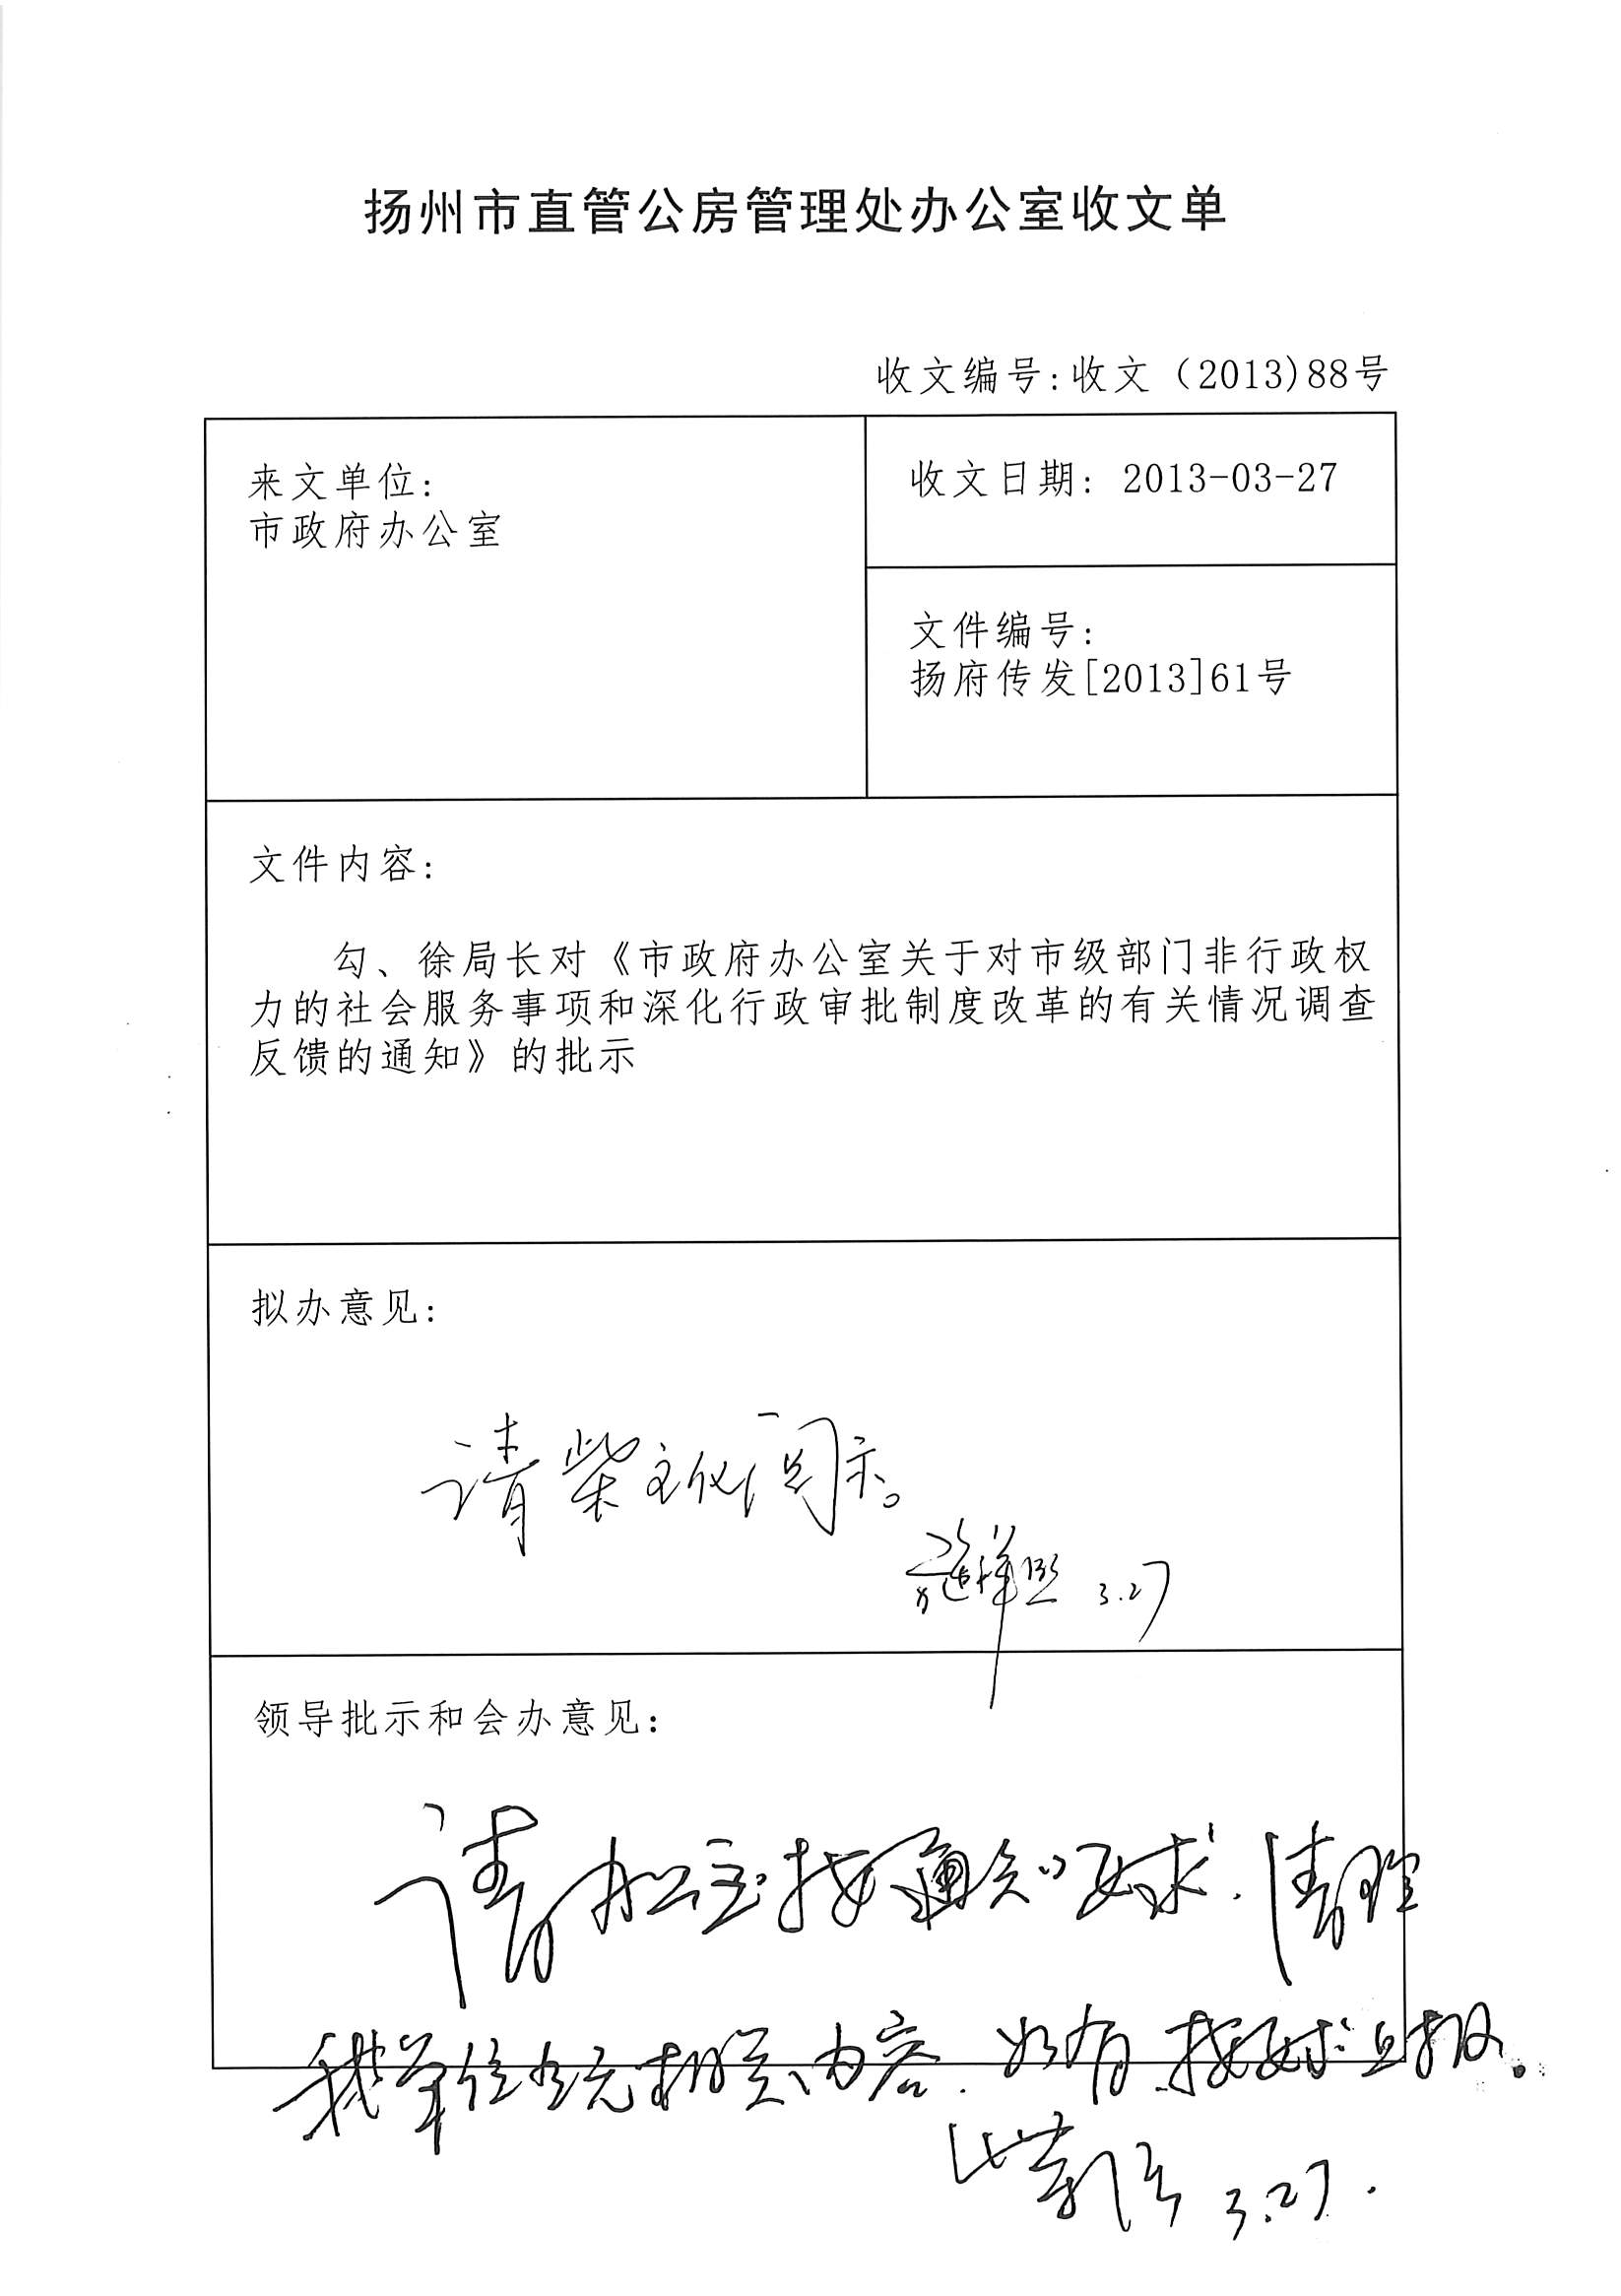 扬州市直管公房管理处办公室收文单
收文编号:收文（2013)88号
来文单位:
市政府办公室
收文日期: 2013-03-27
文件编号:
扬府传发[2013]61号
文件内容:
勾、徐局长对《市政府办公室关于对市级部门非行政权
力的社会服务事项和深化行政审批制度改革的有关情况调查
反馈的通知》的批示
拟办意见:
请柴主任阅示。
3.27
领导批示和会办意见:
请办公室按通知要求.清理
我单位有无相关内容.如有按要求上报。
3.27.